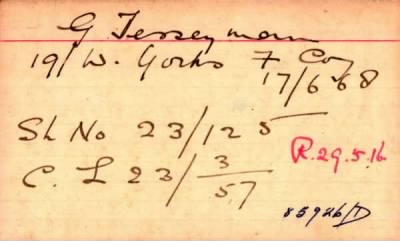 G Jerseyman
19/W. Yorks F Coy
17/6 68
Sh No 23/125
R.29.5.16.
C. L 23/3/57
85926/D